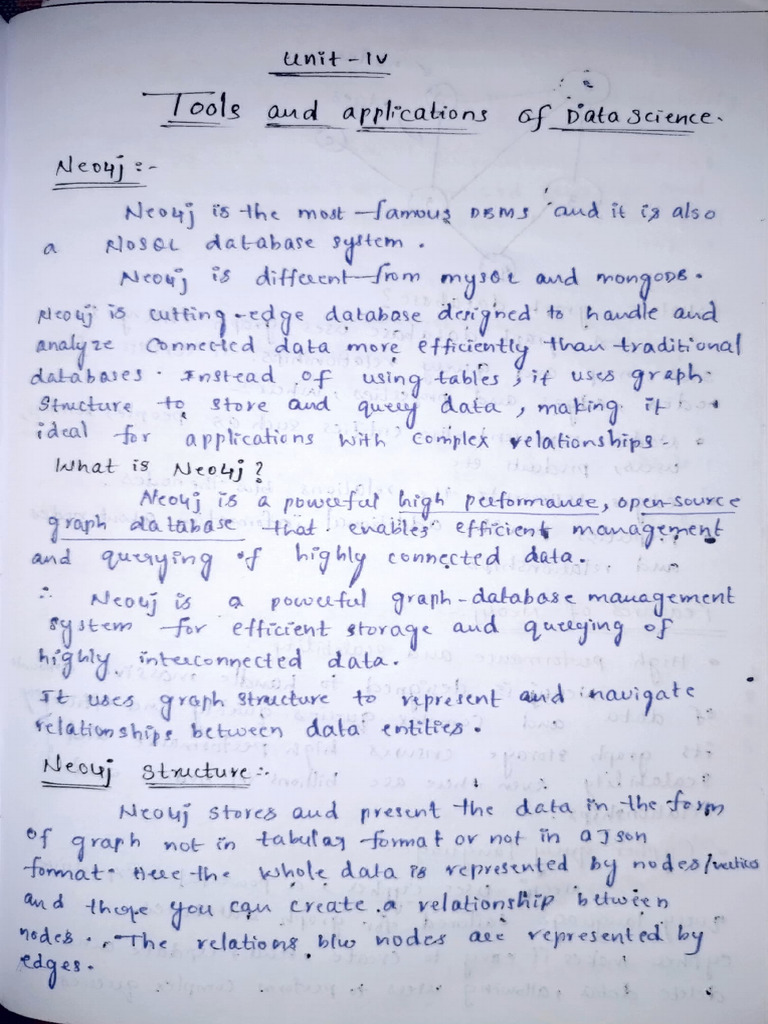 Unit-IV
Tools and applications of Data Science.
Neo4j :-
Neo4j is the most famous DBMS and it is also
a NoSQL database system.
Neo4j is different from mysQL and mongoDB.
Neo4j is cutting-edge database designed to handle and
analyze connected data more efficiently than traditional
databases. Instead of using tables, it uses graph
structure to store and query data, making it
ideal for applications with complex relationships.
What is Neo4j?
Neo4j is a powerful high performance, open-source
graph database that enables efficient management
and querying of highly connected data.
∴ Neo4j is a powerful graph-database management
system for efficient storage and querying of
highly interconnected data.
It uses graph structure to represent and navigate
relationships between data entities.
Neo4j structure:-
Neo4j stores and present the data in the form
of graph not in tabular format or not in a Json
format. Here the whole data is represented by nodes/vertices
and there you can create a relationship between
nodes. The relations b/w nodes are represented by
edges.